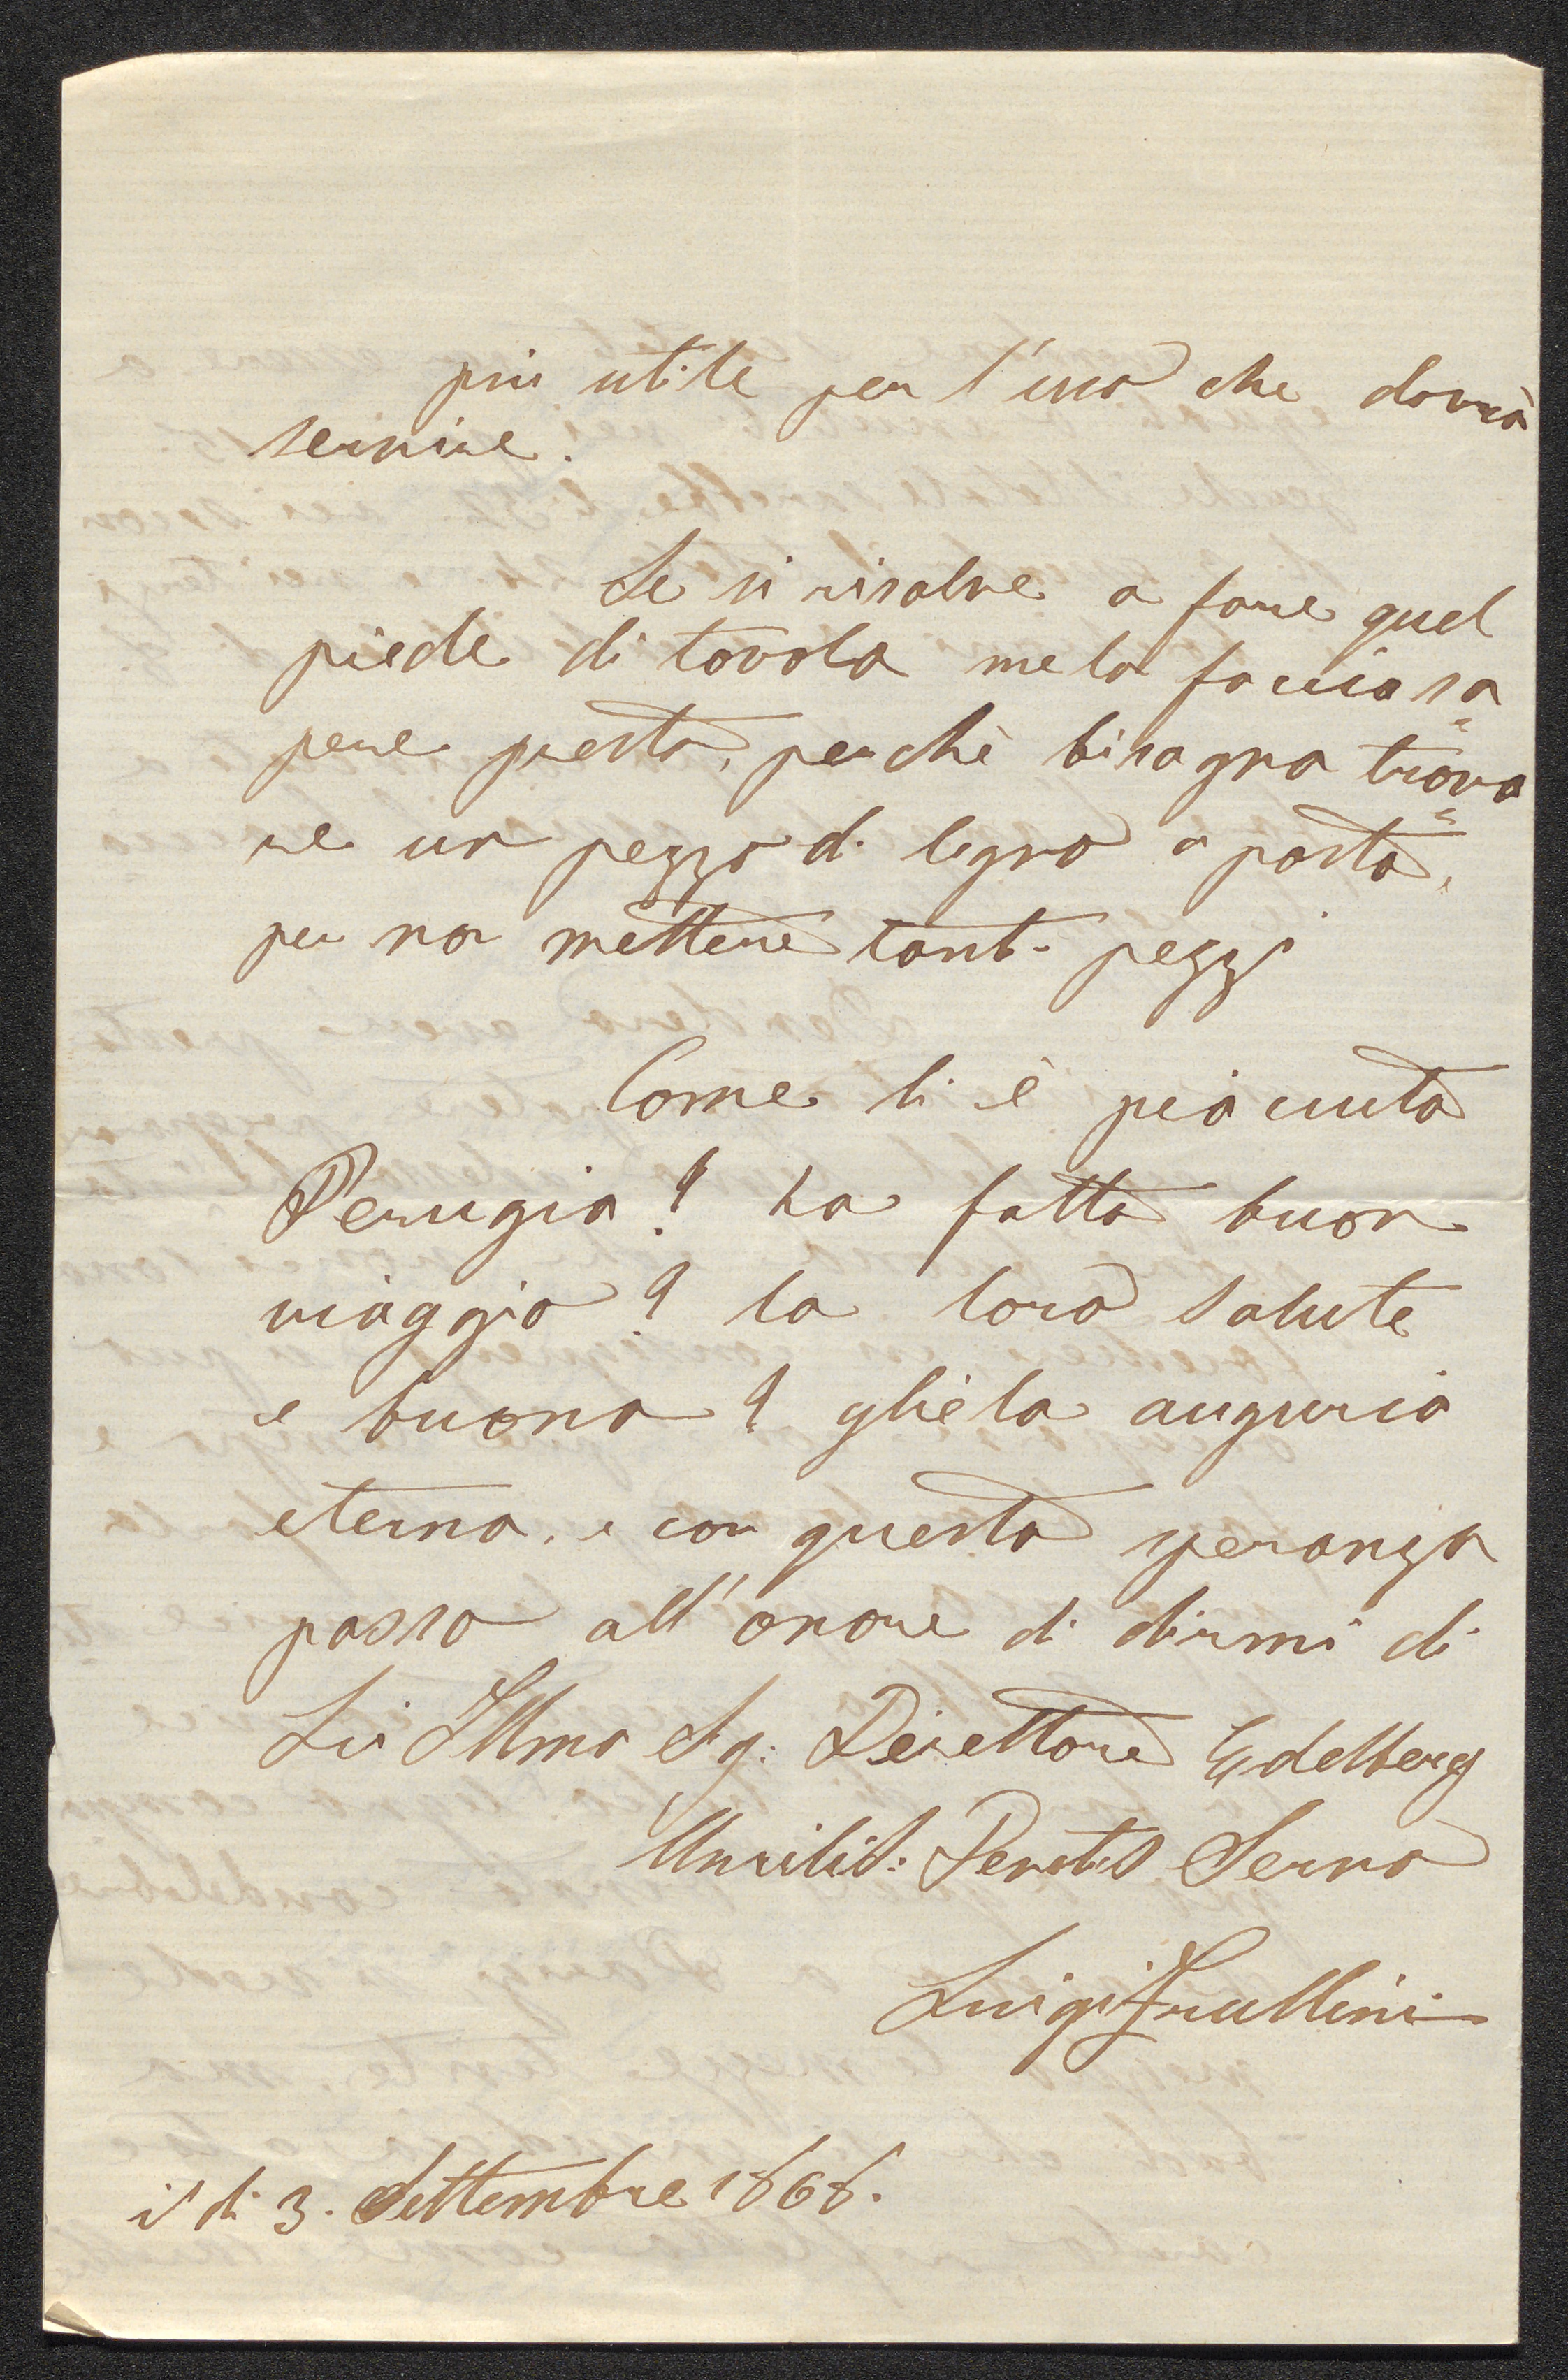 più utile per l'uso che dovrà
servire.
Se si risolve a fare quel
piede di tovola me lo faccia sa=
pere presto, perchè bisogna trova=
re un pezzo di legno a posta,
per non mettere tanti pezzi
Come li è piaciuta
Perugia? ha fatto buon
viaggio? la loro salute
e buona? gliela augurio
eterna, e con questa speranza
passo all'onore di dirmi di
Lei Illmo Sig: Direttore Eitelberg
Umilis: Devotis Servo
Luigi Frullini
il di 3. Settembre 1868.